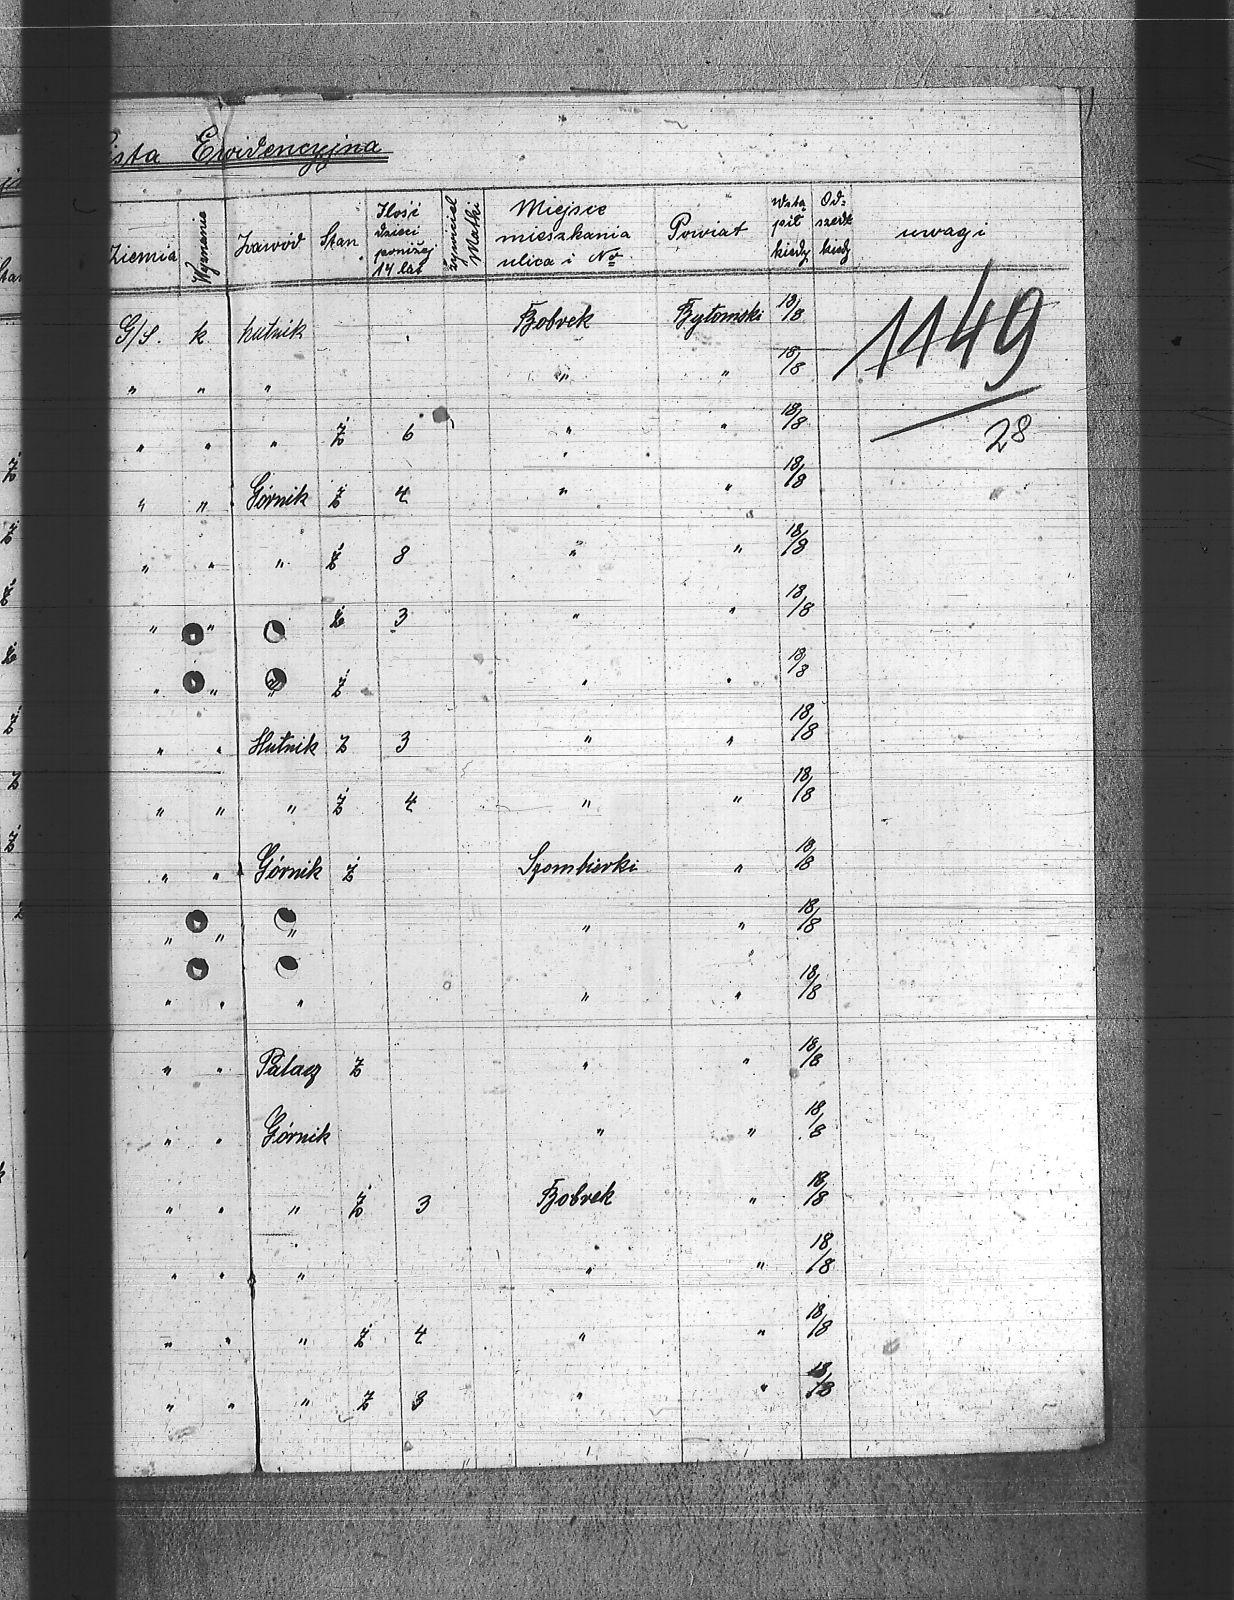 Lista Ewidencyjna
Ziemia Wyznanie Zawód Stan Ilość dzieci poniżej 14 lat żywiciel Matki Miejsce mieszkania ulica i No Powiat Wstąpił kiedy Odszedł kiedy uwagi
G/S. k. hutnik Bobrek Bytomski 18/8 1149
" " " " " 18/8
" " " Ż 6 " " 18/8 28
" " Górnik Ż 4 " " 18/8
" " " Ż 8 " " 18/8
" " Ż 3 " " 18/8
" " " Ż " " 18/8
" " Hutnik Ż 3 " " 18/8
" " " Ż 4 " " 18/8
" " Górnik Ż Szombierki " 18/8
" " " " " 18/8
" " " " " 18/8
" " Palacz Ż " " 18/8
" " Górnik " " 18/8
" " " Ż 3 Bobrek " 18/8
" " " " " 18/8
" " " Ż 4 " " 18/8
" " " Ż 3 " " 18/8